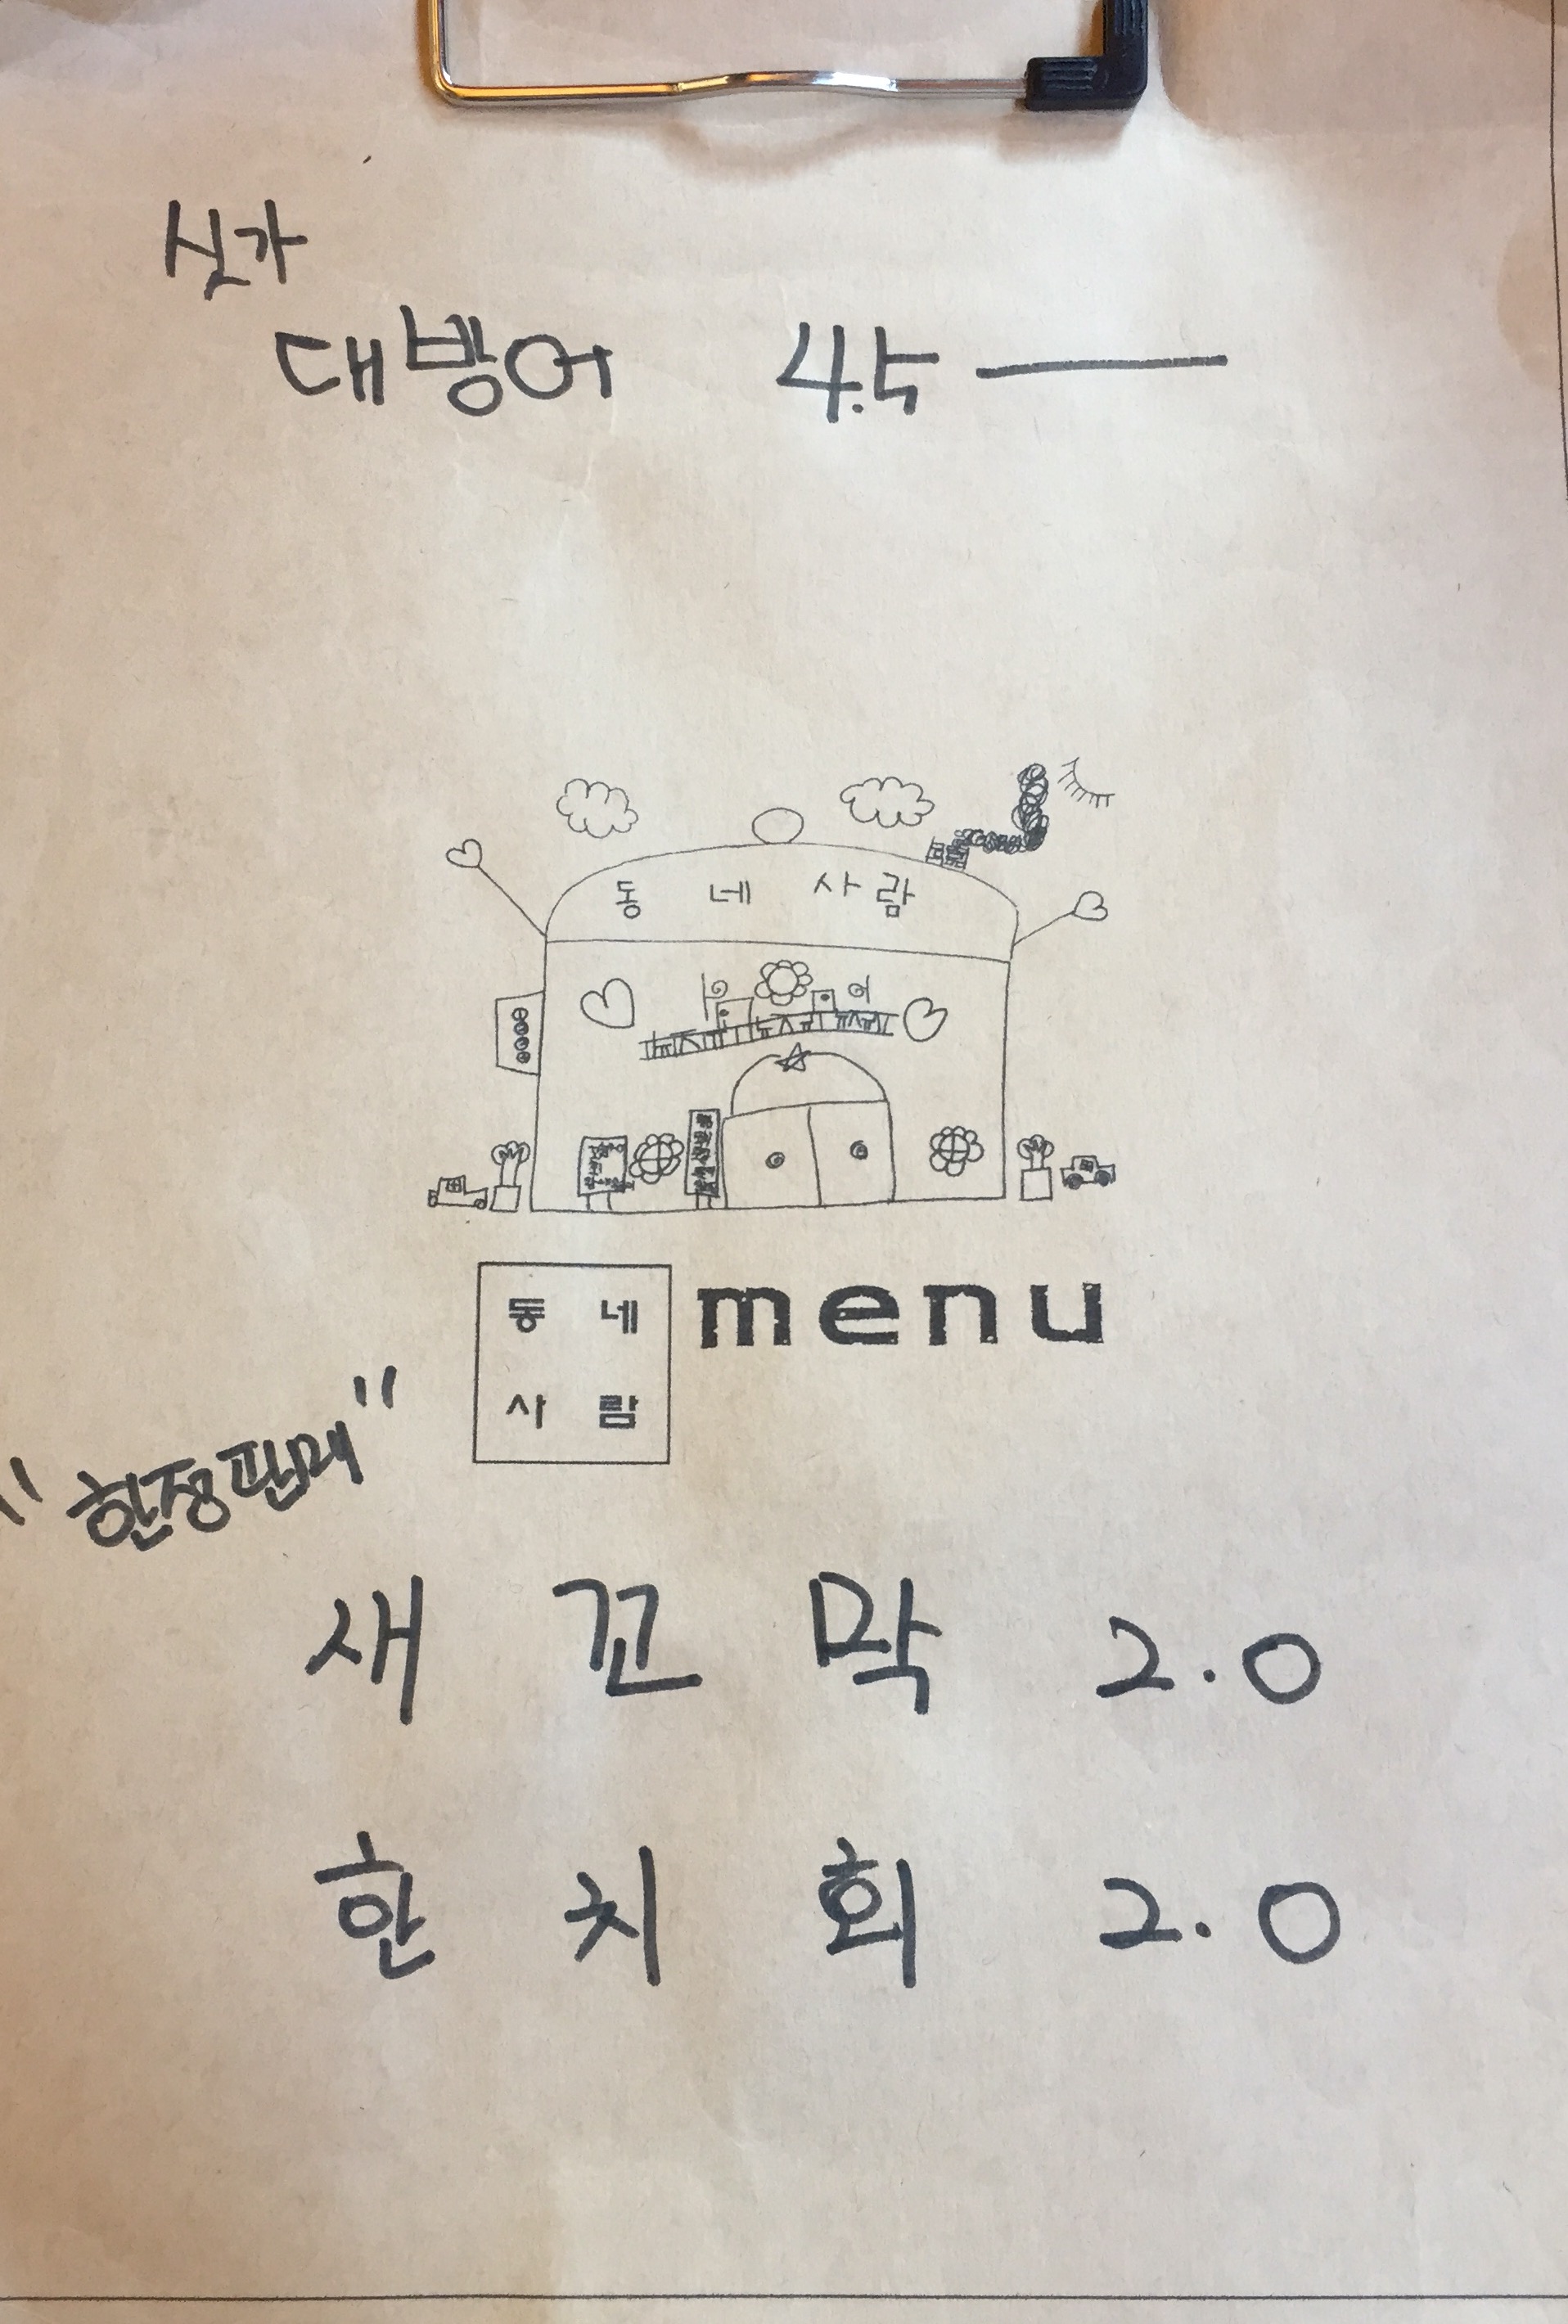 싯가
대방어 4.5 —
동네사람
동네 menu
사람
"한정판매"
새꼬막 2.0
한치회 2.0